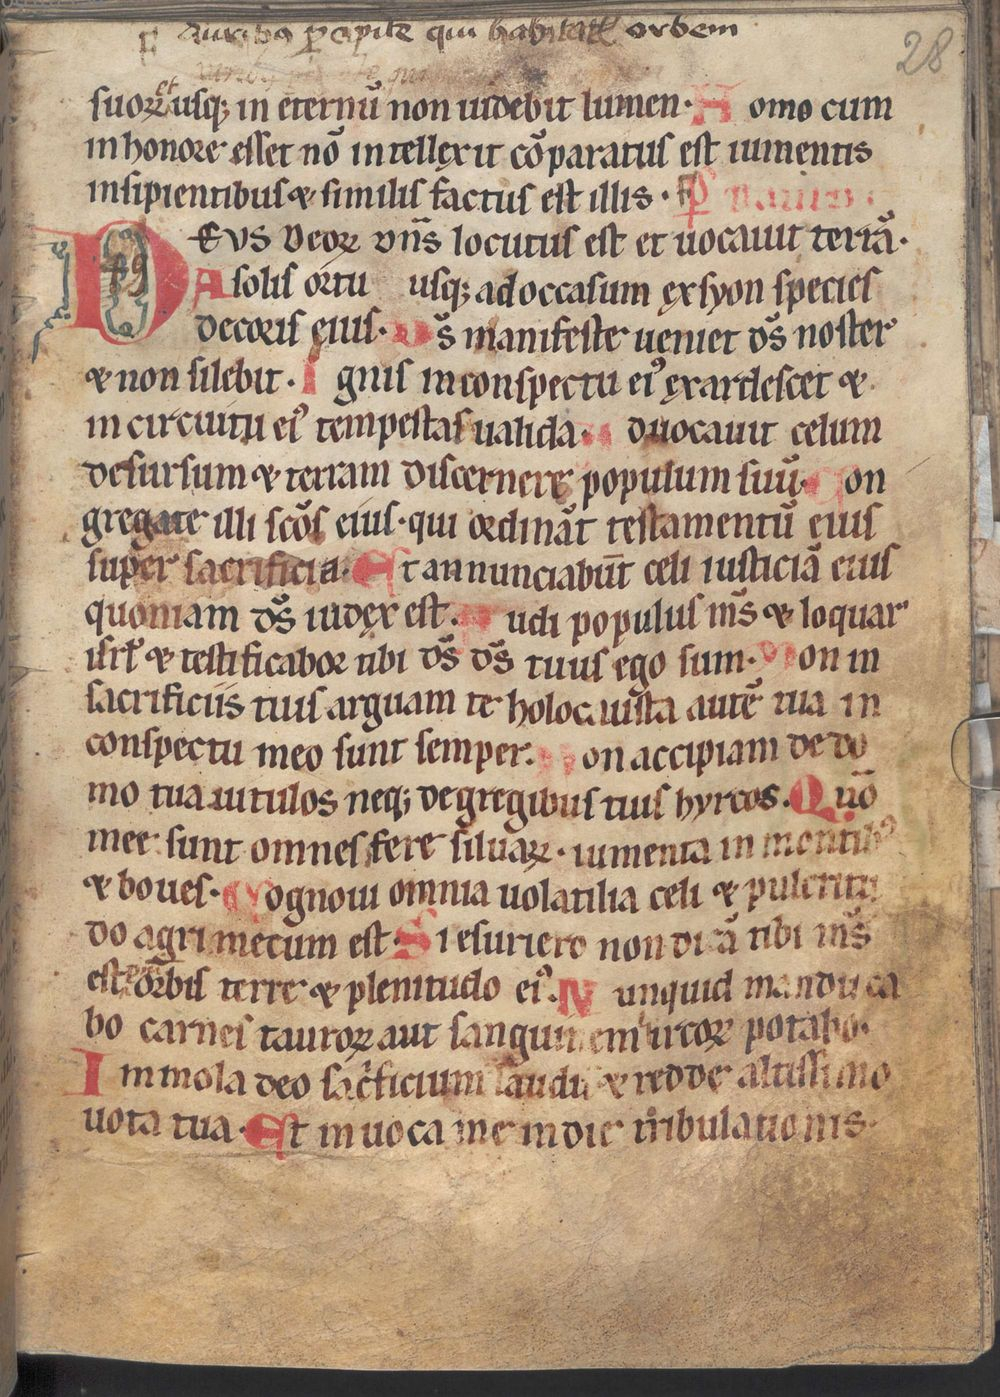 auribus percipite qui habitatis orbem
28
suoꝝ et usq; in eternū non uidebit lumen· Homo cum
in honore esset nō intellexit cōparatus est iumentis
insipientibus & similis factus est illis·
DEVS deoꝝ dn̄s locutus est et uocauit terrā·
49
A solis ortu usq; ad occasum ex syon species
decoris eius· Ds̄ manifeste ueniet ds̄ noster
& non silebit· Ignis in conspectu eiꝰ exardescet &
in circuitu eiꝰ tempestas ualida· Aduocauit celum
desursum & terram discernere populum suū· Con
gregate illi scōs eius· qui ordināt testamentū eius
super sacrificia· Et annunciabūt celi iusticiā eius
quoniam ds̄ iudex est· Audi populus ms̄ & loquar
isrl̄ & testificabor tibi ds̄ ds̄ tuus ego sum· Non in
sacrificiis tuis arguam te holocausta autē tua in
conspectu meo sunt semper· Non accipiam de do
mo tua uitulos neq; de gregibus tuis hyrcos· Quō
mee sunt omnes fere siluaꝝ· iumenta in montibꝰ
& boues· Cognoui omnia uolatilia celi & pulcritu
do agri mecum est· Si esuriero non dicā tibi ms̄
est orbis terre & plenitudo eiꝰ· Nunquid manduca
bo carnes tauroꝝ aut sanguinem ircoꝝ potabo·
Immola deo sacficium laudis & redde altissimo
uota tua· Et inuoca me in die tribulationis·